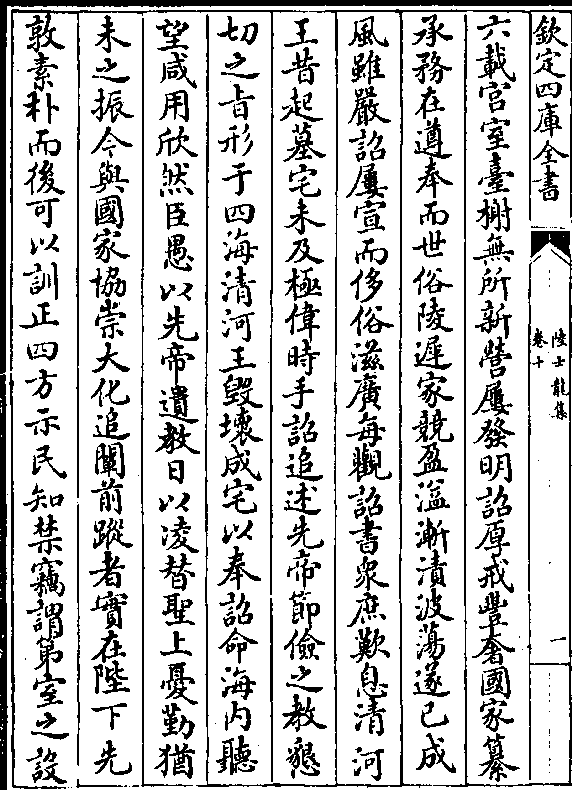 欽定四庫全書
陸士龍集
卷十
一
六載宫室臺榭無所新營屢發明詔厚戒豐奢國家纂
承務在遵奉而世俗陵遲家競盈溢漸漬波蕩遂已成
風雖嚴詔屢宣而侈俗滋廣每觀詔書衆庶歎息清河
王昔起墓宅未及極偉時手詔追述先帝節儉之教懇
切之旨形于四海清河王毀壊成宅以奉詔命海内聽
望咸用欣然臣愚以先帝遺教日以凌替聖上憂勤猶
未之振今與國家協崇大化追闡前蹤者實在陛下先
敦素朴而後可以訓正四方示民知禁竊謂第室之設